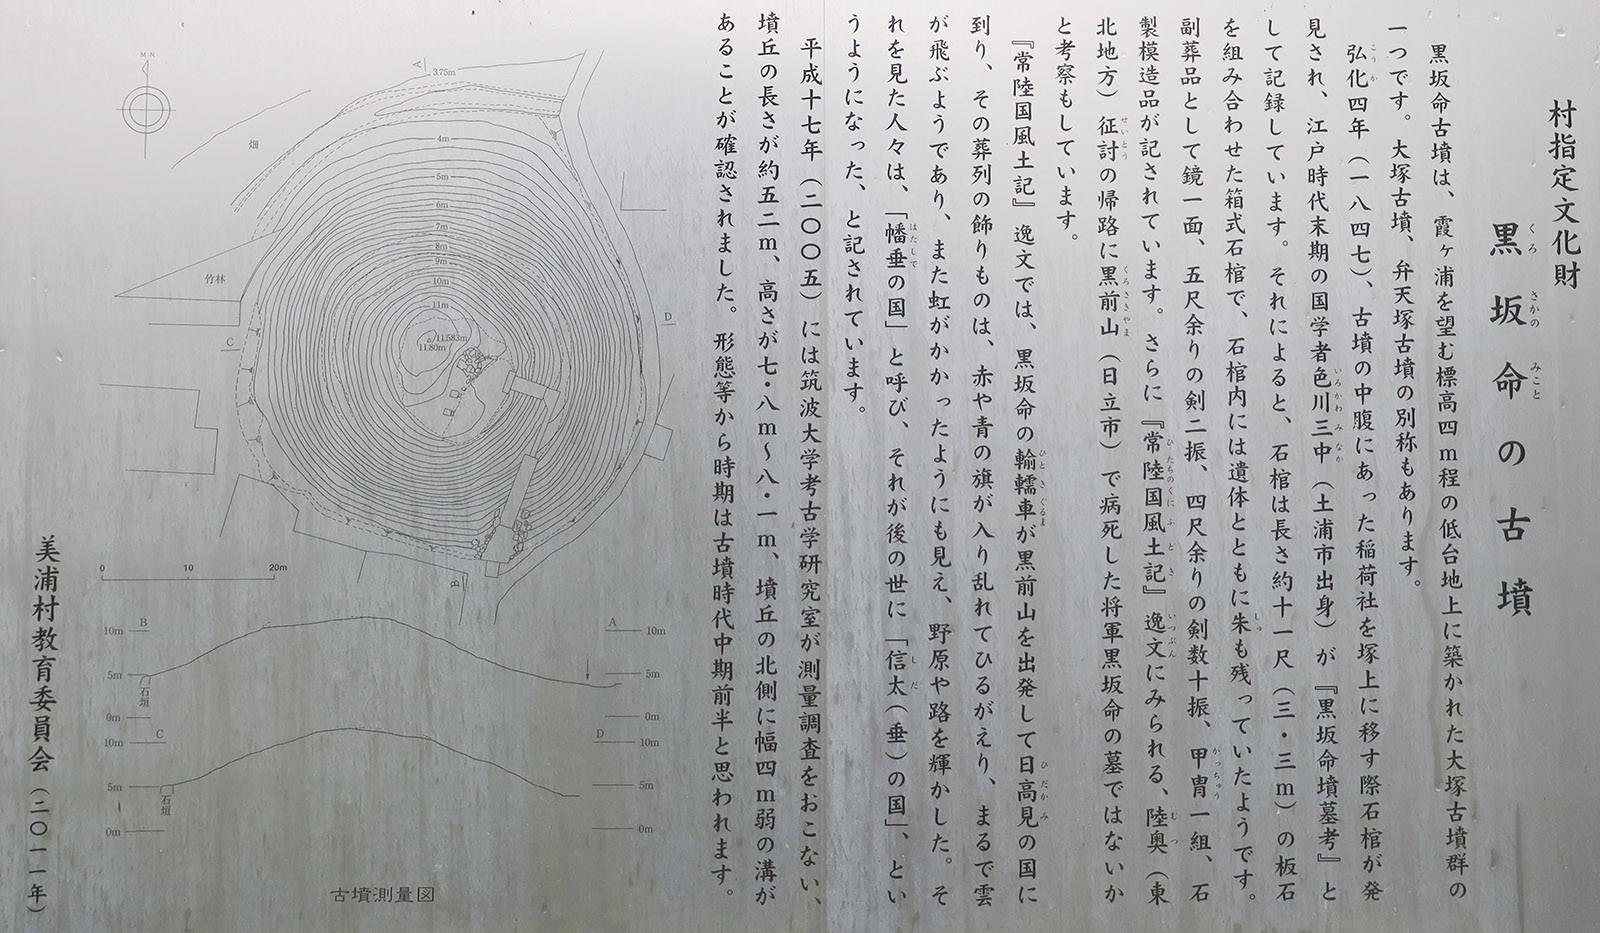 村指定文化財
黒坂命の古墳
くろ さかの みこと
黒坂命古墳は、霞ヶ浦を望む標高四m程の低台地上に築かれた大塚古墳群の
一つです。大塚古墳、弁天塚古墳の別称もあります。
弘化四年(一八四七)、古墳の中腹にあった稲荷社を塚上に移す際石棺が発
こうか
見され、江戸時代末期の国学者色川三中(土浦市出身)が『黒坂命墳墓考』と
いろかわみなか
して記録しています。それによると、石棺は長さ約十一尺(三・三m)の板石
を組み合わせた箱式石棺で、石棺内には遺体とともに朱も残っていたようです。
しゅ
副葬品として鏡一面、五尺余りの剣二振、四尺余りの剣数十振、甲冑一組、石
かっちゅう
製模造品が記されています。さらに『常陸国風土記』逸文にみられる、陸奥(東
ひたちのくにふどき いつぶん むつ
北地方)征討の帰路に黒前山(日立市)で病死した将軍黒坂命の墓ではないか
せいとう くろさきやま
と考察もしています。
『常陸国風土記』逸文では、黒坂命の輸轜車が黒前山を出発して日高見の国に
ひときぐるま ひだかみ
到り、その葬列の飾りものは、赤や青の旗が入り乱れてひるがえり、まるで雲
が飛ぶようであり、また虹がかかったようにも見え、野原や路を輝かした。そ
れを見た人々は、「幡垂の国」と呼び、それが後の世に「信太(垂)の国」、とい
はたしで しだ
うようになった、と記されています。
平成十七年(二〇〇五)には筑波大学考古学研究室が測量調査をおこない、
墳丘の長さが約五二m、高さが七・八m〜八・一m、墳丘の北側に幅四m弱の溝が
あることが確認されました。形態等から時期は古墳時代中期前半と思われます。
M.N.
A
3.75m
4m
5m
6m
7m
8m
9m
10m
11m
11.583m
11.80m
畑
竹林
C
D
B
0 10 20m
B A
10m 10m
5m 5m
石垣
0m 0m
C D
10m 10m
5m 5m
石垣
0m 0m
古墳測量図
美浦村教育委員会(二〇一一年)